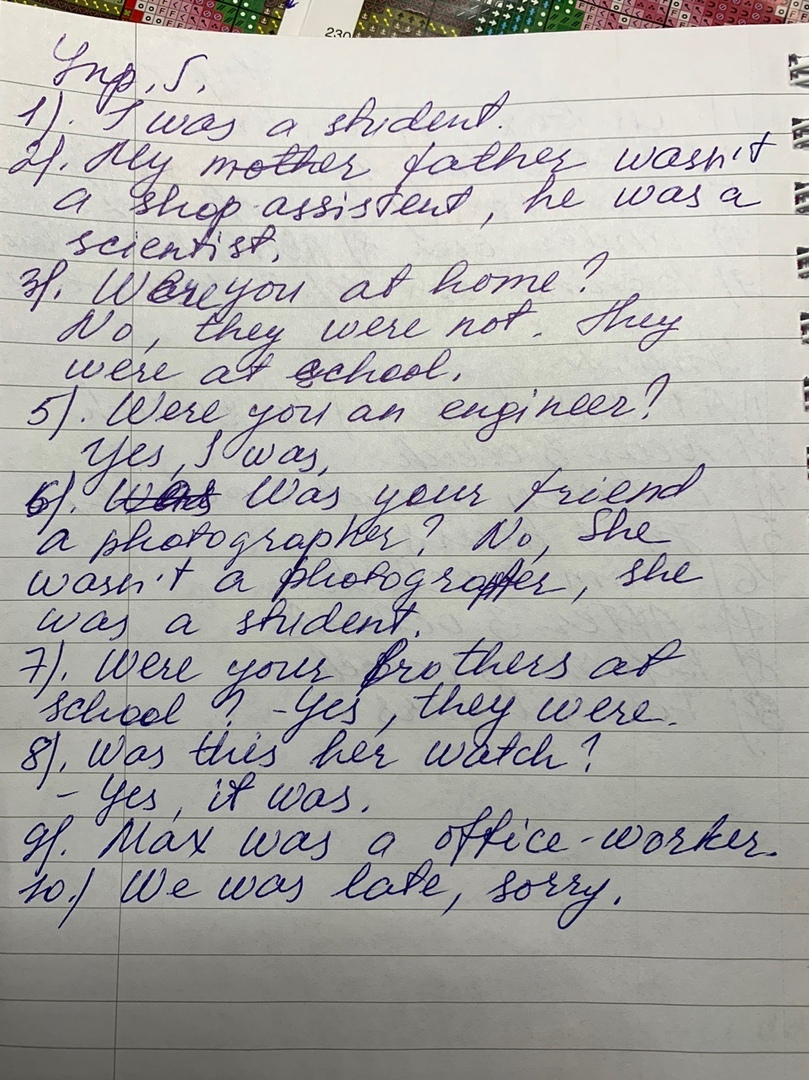 230
Упр. 5.
1). I was a student.
2). My mother father wasn't
a shop-assistent, he was a
scientist.
3). Were you at home?
No, they were not. They
were at school.
5). Were you an engineer?
Yes, I was,
6). Was Was your friend
a photographer? No, She
wasn't a photographer, she
was a student.
7). Were your brothers at
school? -Yes, they were.
8). Was this her watch?
- Yes, it was.
9). Max was a office-worker.
10.) We was late, sorry.